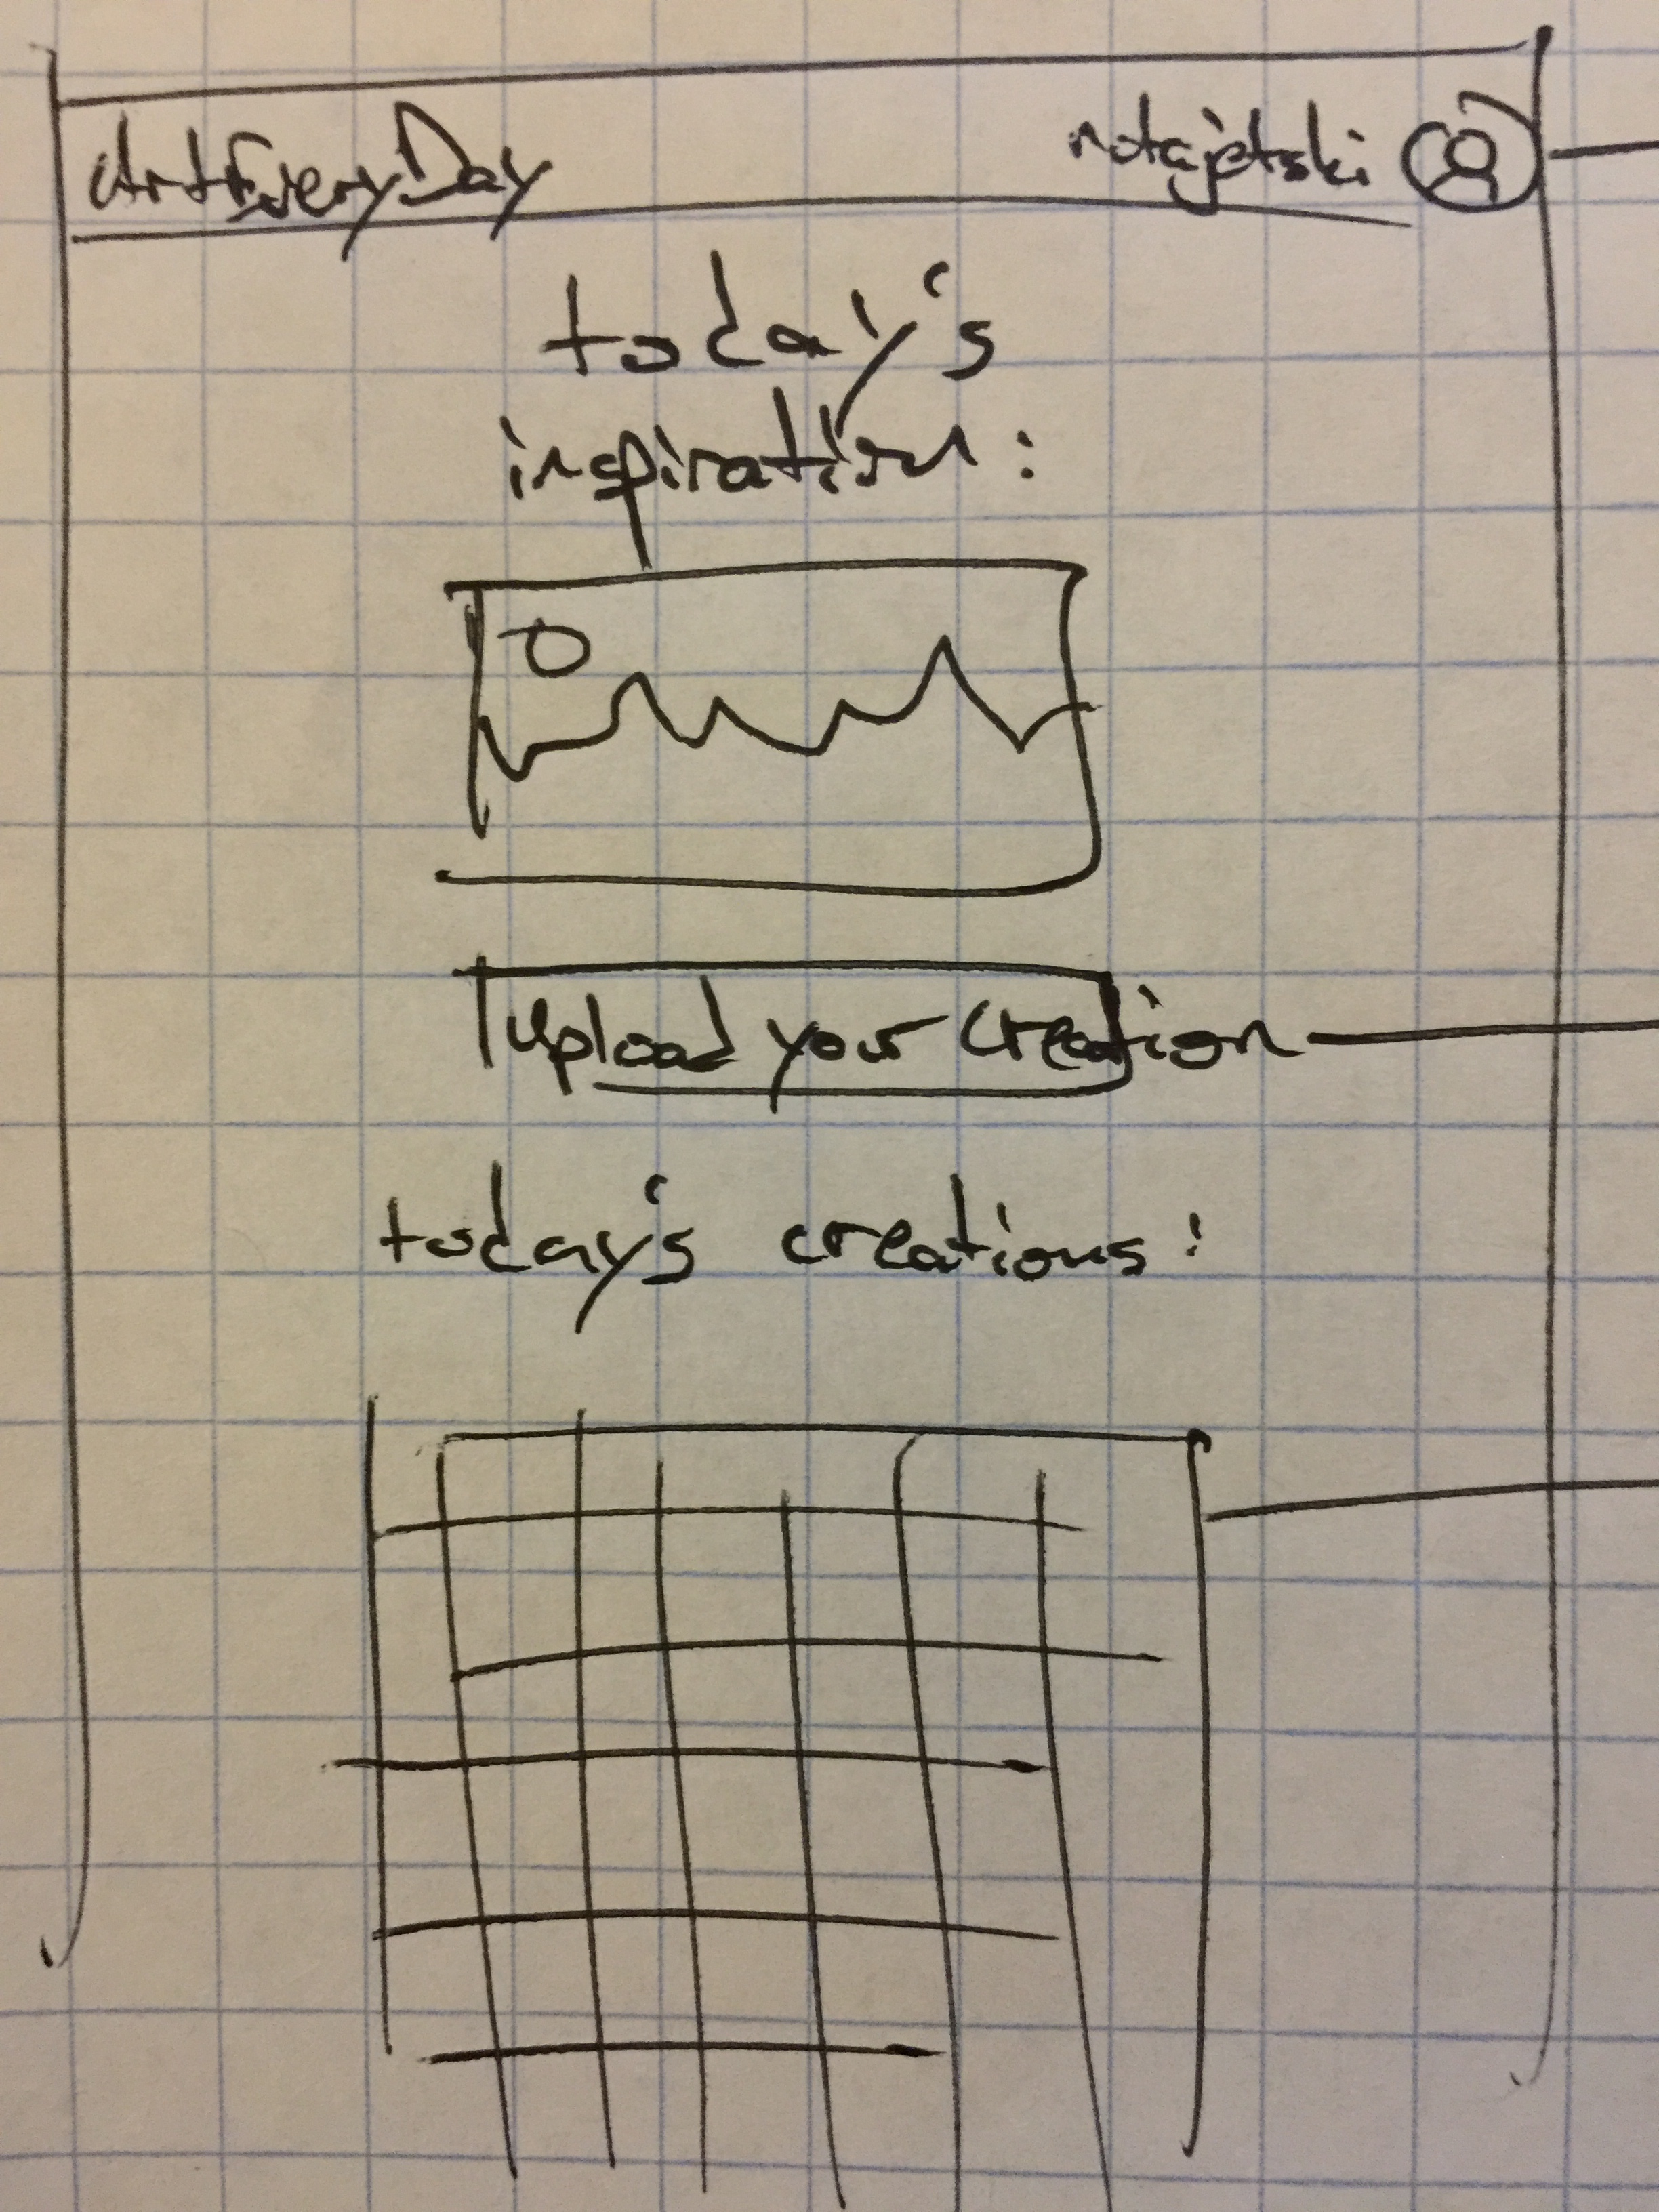 ArtEveryDay notajetski
today's
inspiration:
Upload your creation
today's creations: